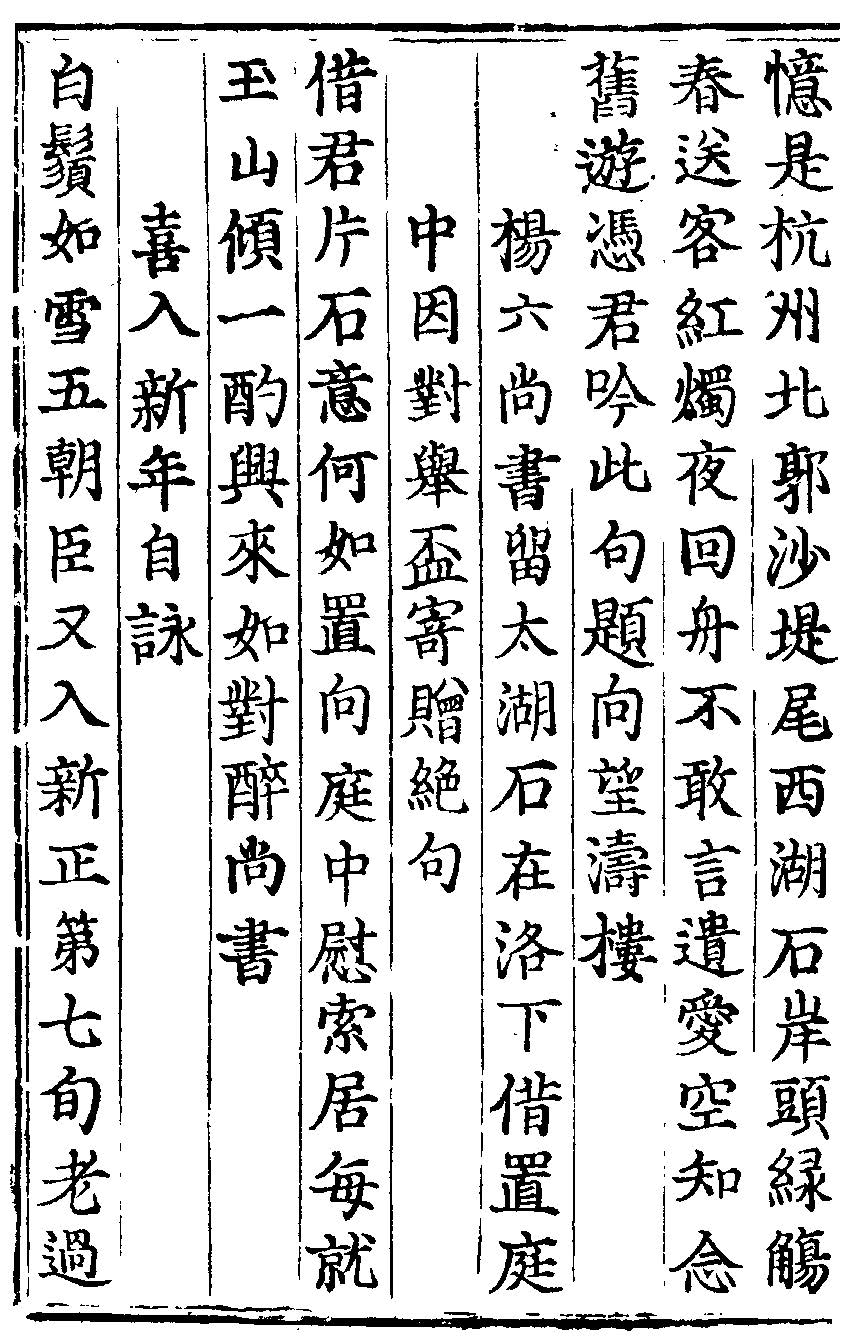 憶是杭州北郭沙堤尾西湖石岸頭緑觴
春送客紅燭夜回舟不敢言遺愛空知念
舊遊憑君吟此句題向望濤樓
楊六尚書留太湖石在洛下借置庭
中因對舉盃寄贈絶句
借君片石意何如置向庭中慰索居每就
玉山傾一酌興來如對醉尚書
喜入新年自詠
白鬚如雪五朝臣又入新正第七旬老過